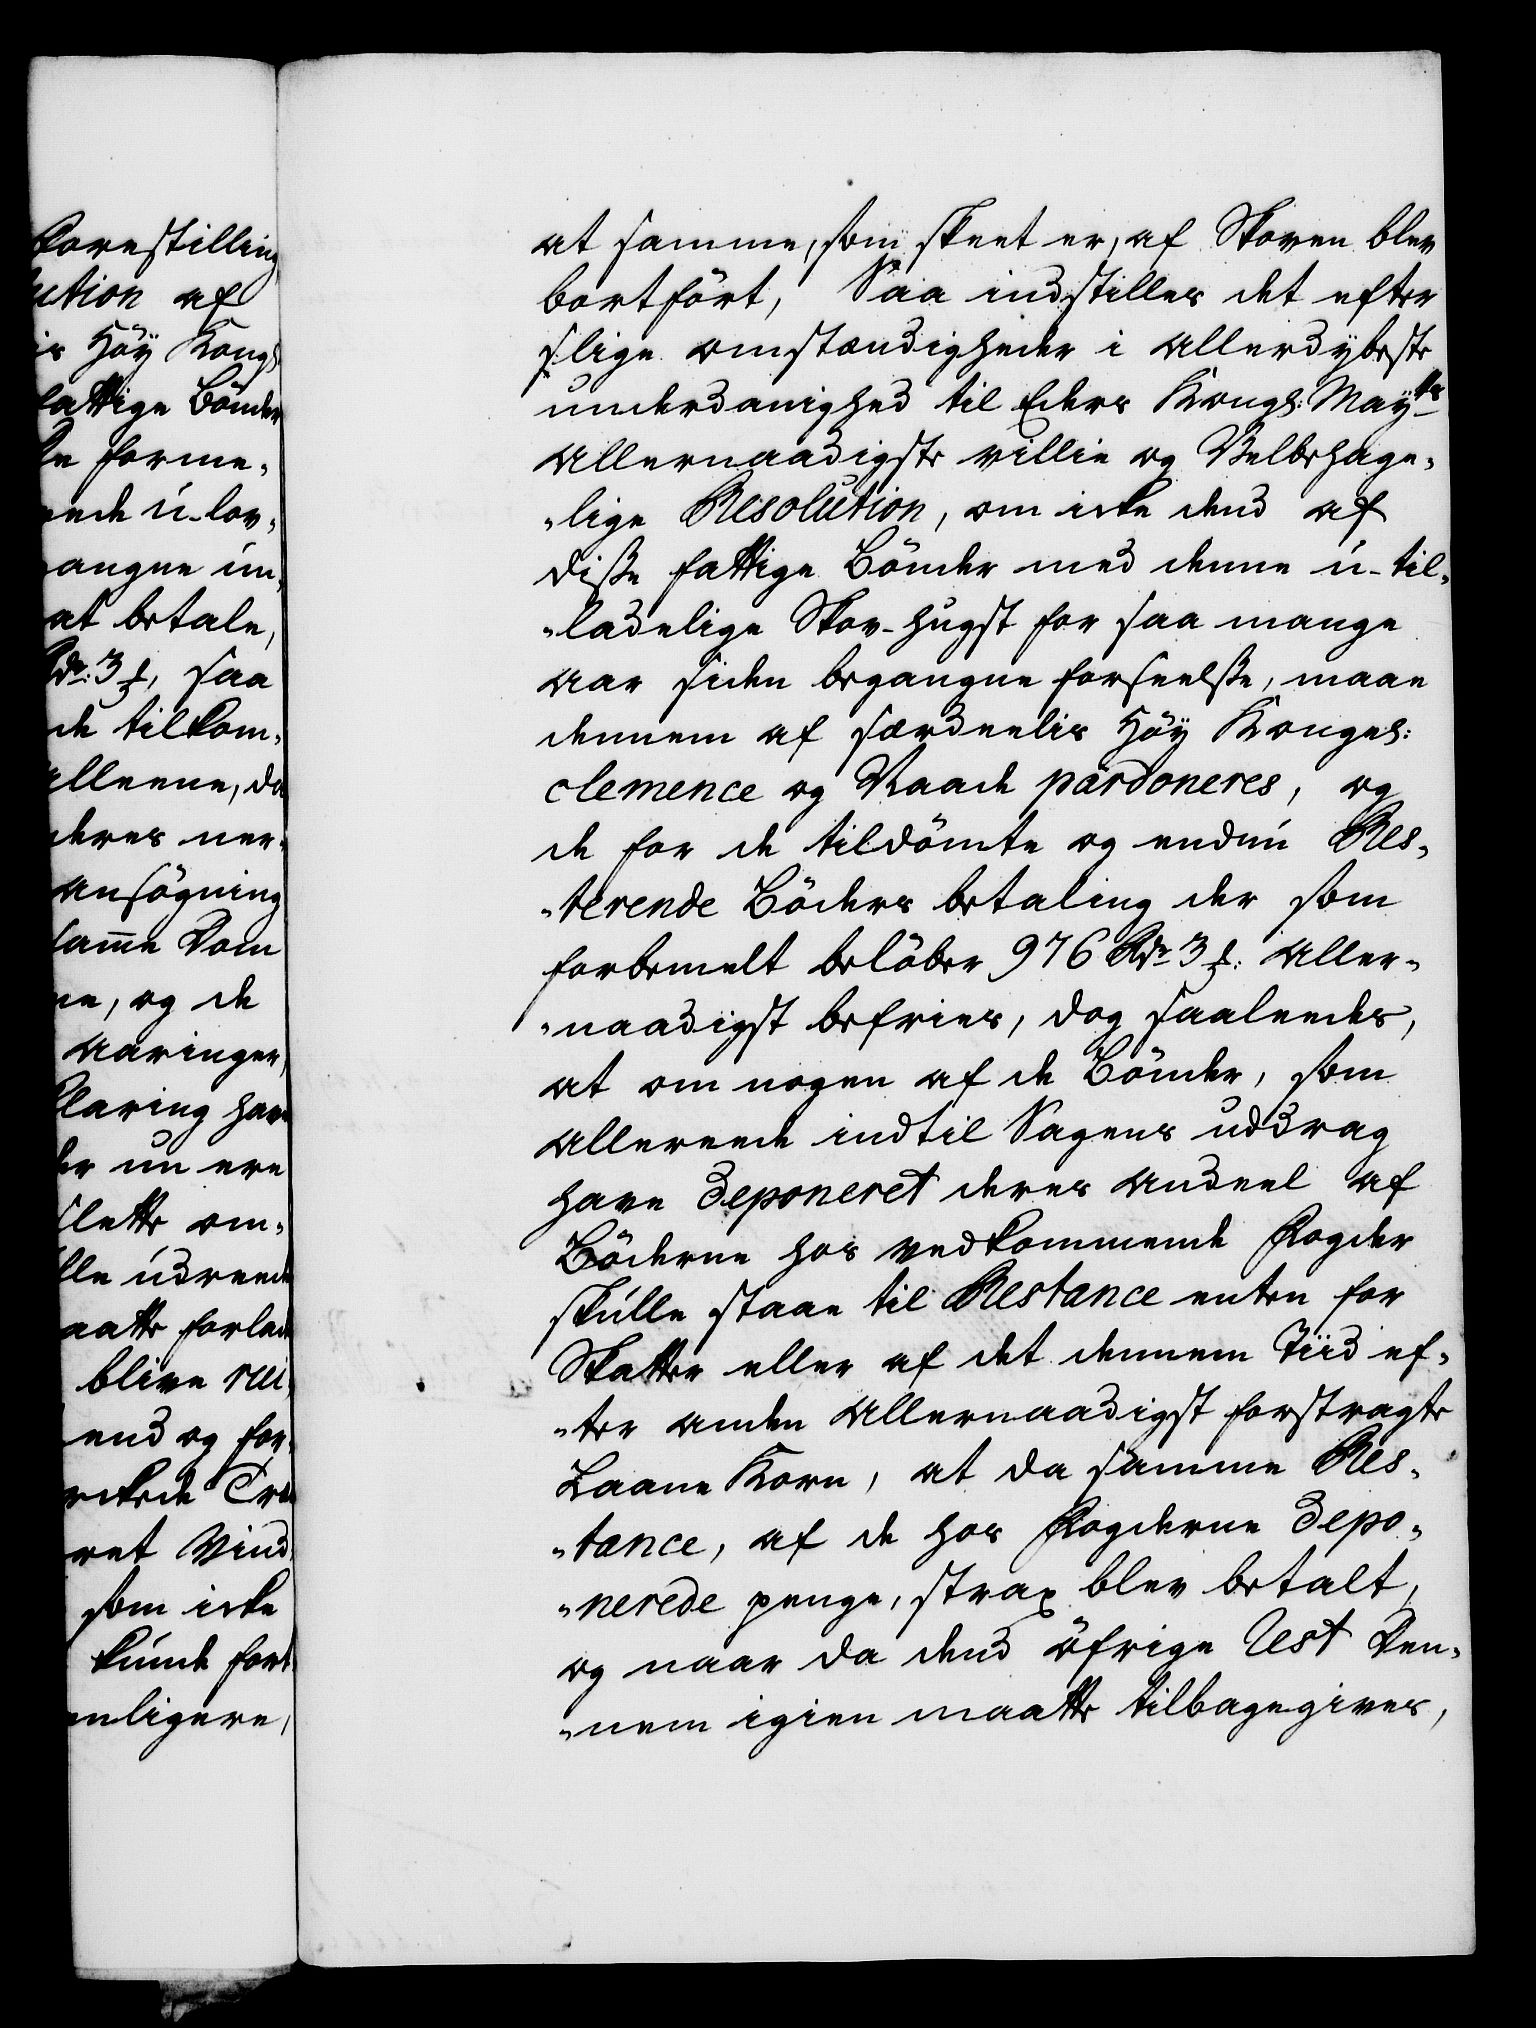 Forestilling
ution af
is Höy Kongl:
fattige Bönder
forme„
ende u-lov„
gangne un„
at betale,
Rdr: 3 ß, saa
de tilkom„
alleene, da
deres ner„
ansögning
samme Dom
ne, og de
Aaringer,
klaring have
der nu ere
slette om„
lle udreede
aatte forlade
blive rui„
end og for„
Cre
ret Vind
som icke
kunde fort
nligere,
at samme, som skeet er, af Skoven blev
bortfört, Saa indstilles det efter
slige omstændigheder i allerdybeste
underdanighed til Eders Kongl: Mayts
allernaadigste villie og Velbehage„
„lige Resolution, om icke dend af
diße fattige Bönder med denne u-til„
„ladelige Skov-hugst for saa mange
aar siden begangne forseelße, maae
dennem af særdeelis Höy Konges:
clemence og Naade pardoneres, og
de for de tildömte og endnu Res„
„terende Böders betaling der som
forbemelt belöber 976 Rdr 3 ß: aller„
„naadigst befries, dog saaleedes,
at om nogen af de Bönder, som
allereede indtil Sagens uddrag
have deponeret deres andeel af
Böderne hos vedkommende Fogder
skulle staae til Restance enten for
Skatter eller af det dennem Tiid ef„
„ter anden allernaadigst forstragte
Laane Korn, at da samme Res„
„tance, af de hos Fogderne depo„
„nerede penge, strax blev betalt,
og naar da dend öfrige Rest den„
„nem igien maatte tilbagegives,